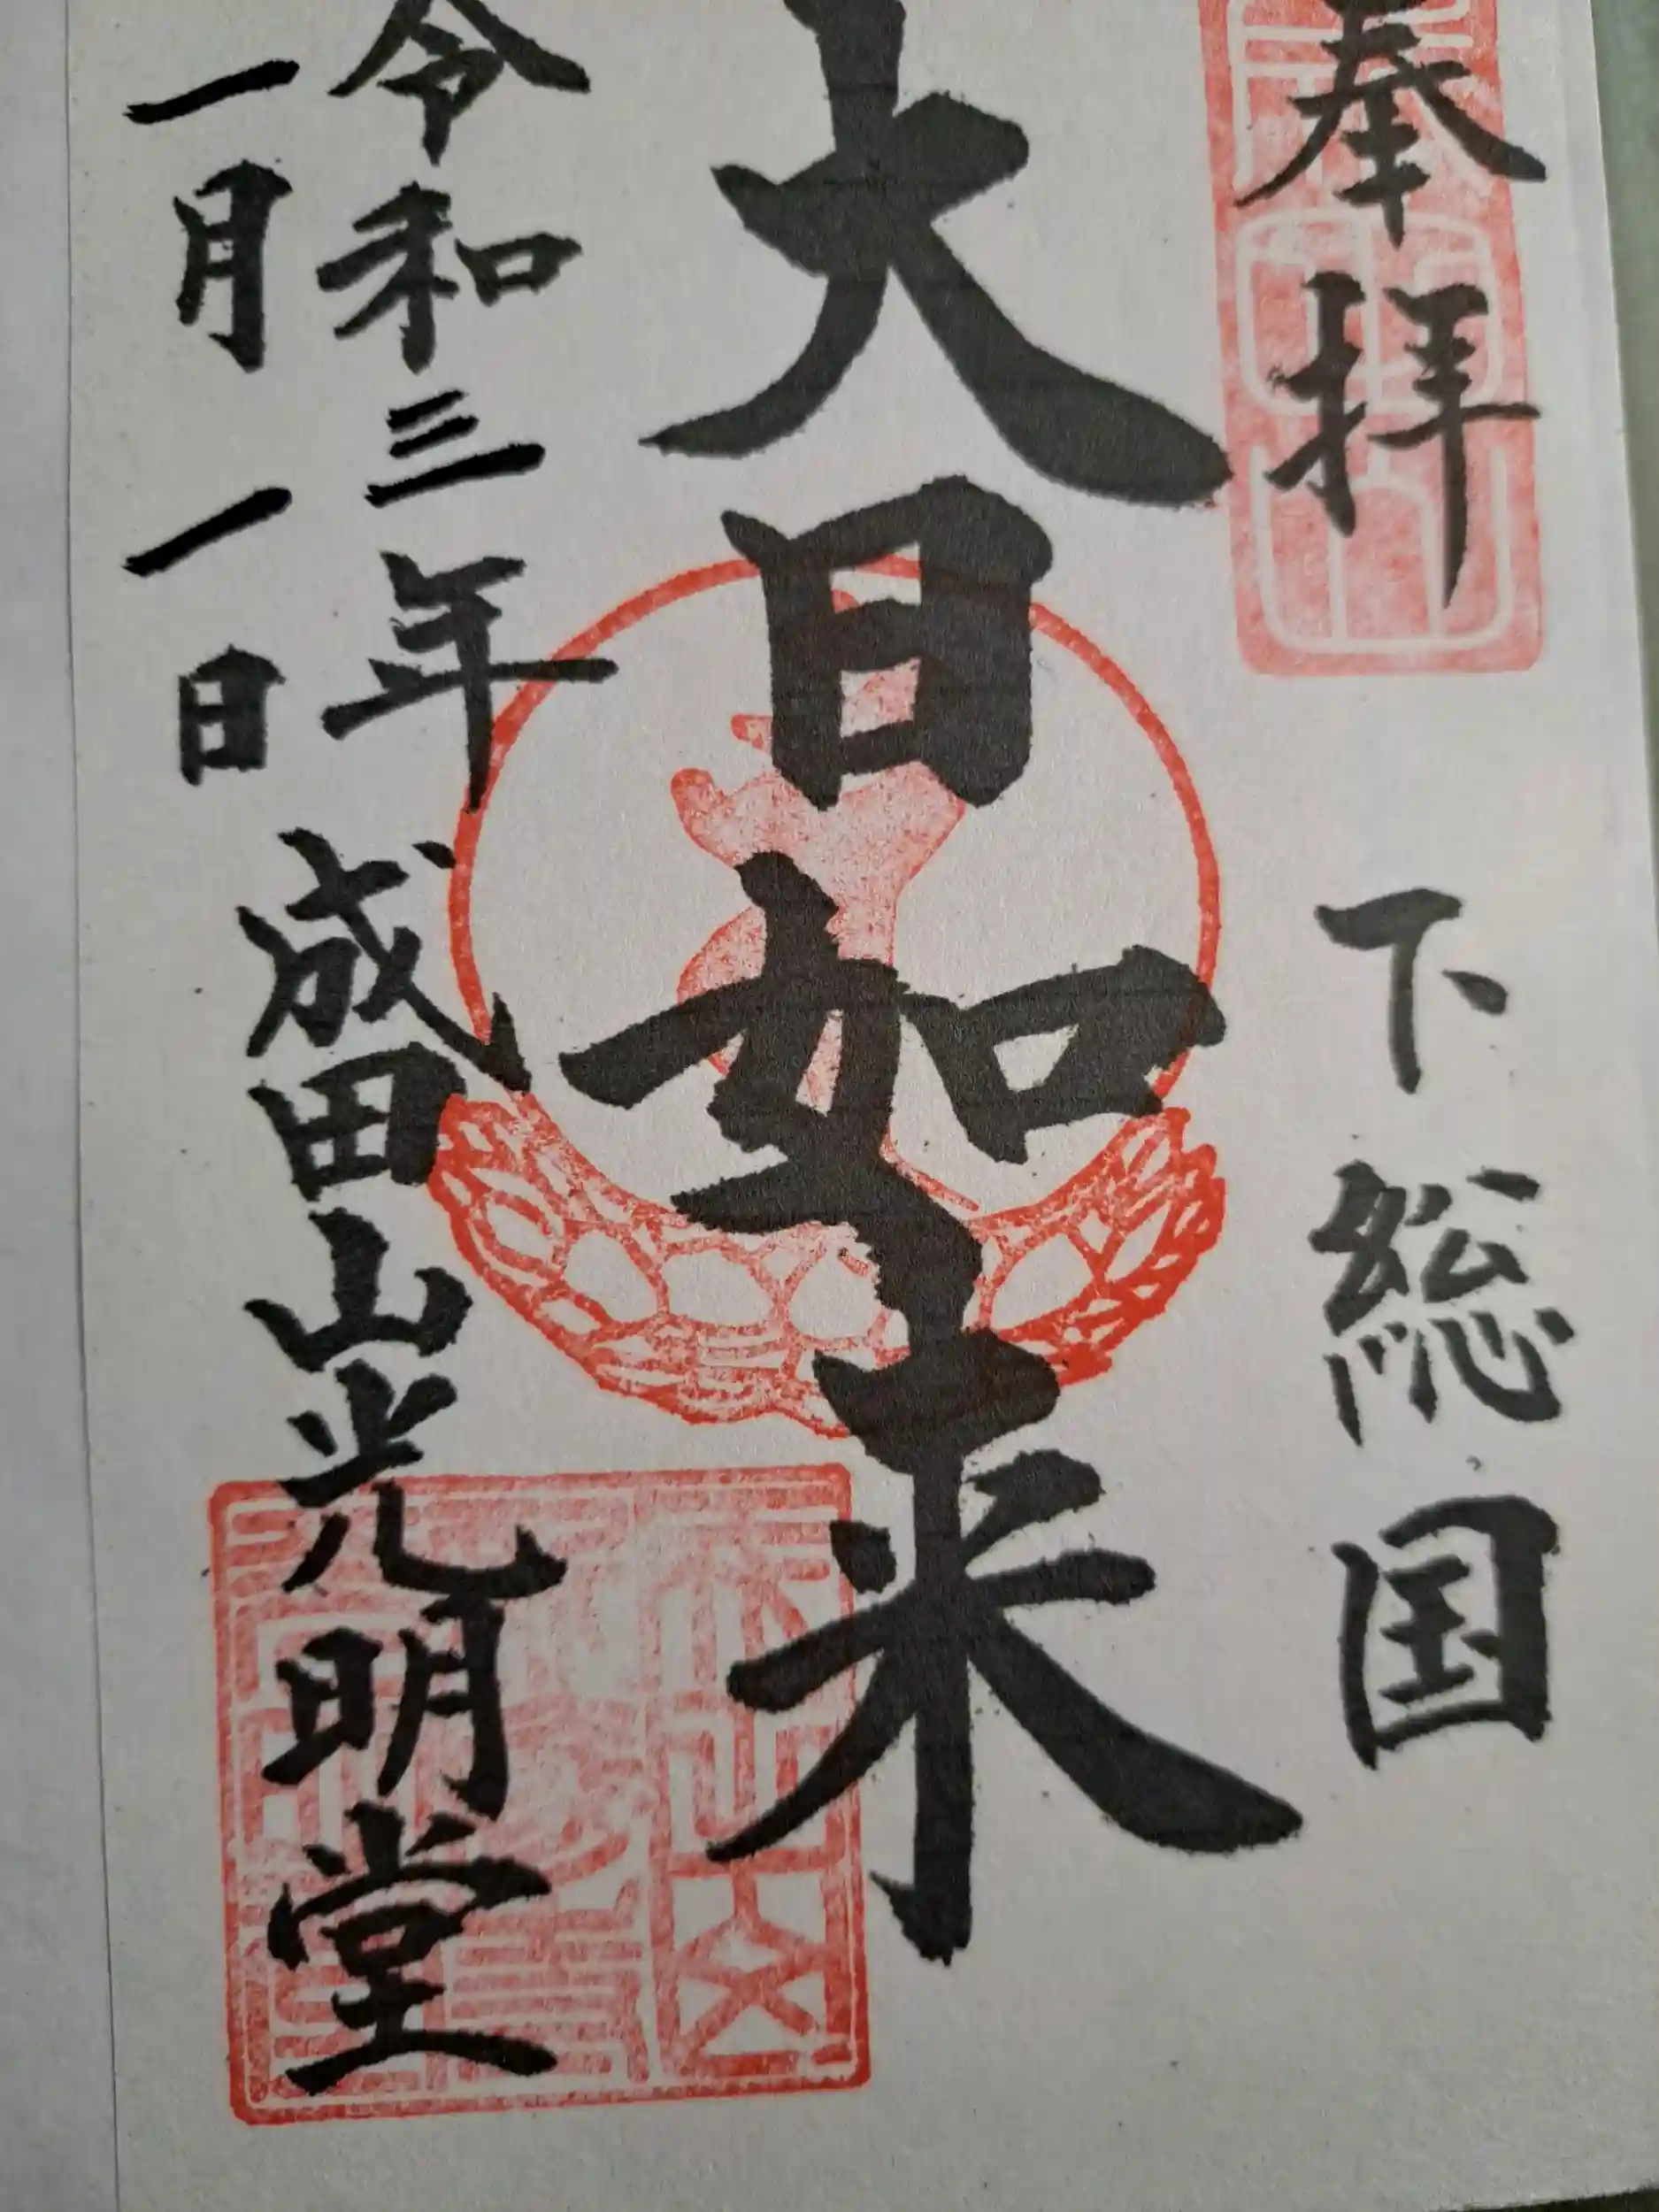 奉拝
下総国
大日如来
令和三年
一月一日
成田山光明堂